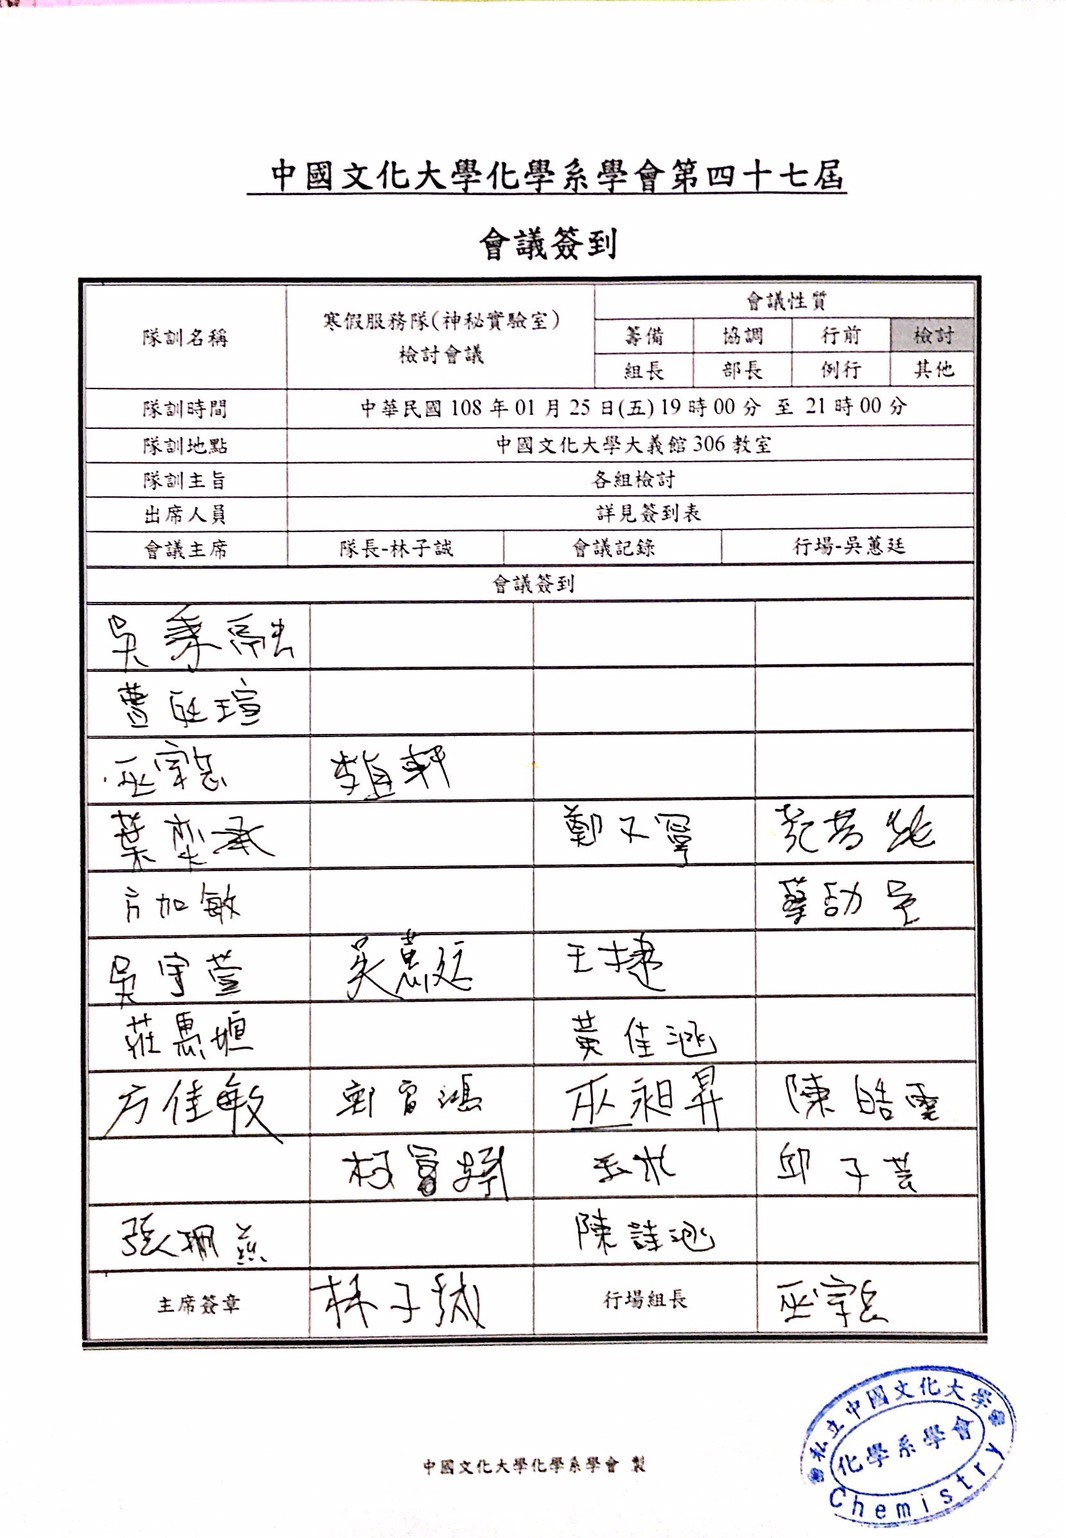 中國文化大學化學系學會第四十七屆
會議簽到
隊訓名稱 寒假服務隊(神秘實驗室) 檢討會議 會議性質
籌備 協調 行前 檢討
組長 部長 例行 其他
隊訓時間 中華民國 108 年 01 月 25 日(五) 19 時 00 分 至 21 時 00 分
隊訓地點 中國文化大學大義館 306 教室
隊訓主旨 各組檢討
出席人員 詳見簽到表
會議主席 隊長-林子誠 會議記錄 行場-吳蕙廷
會議簽到
吳秉融
曹 瑄
巫宗 軒
葉 承 鄭 寧
方加敏 蔡劭
吳宇萱 吳蕙廷 王捷
莊惠 黃佳涵
方佳敏 鴻 巫昶昇 陳皓雯
柯 邱子芸
張珊燕 陳詩涵
主席簽章 林子誠 行場組長 巫宗
中國文化大學化學系學會 製
私立中國文化大學
化學系學會
Chemistry